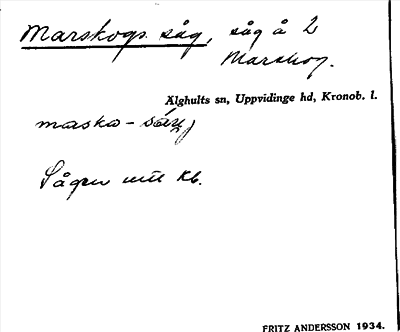 Marskogs såg, såg å 2
Marskog.
Älghults sn, Uppvidinge hd, Kronob. l.
maska-
Sågen
kb.
FRITZ ANDERSSON 1934.